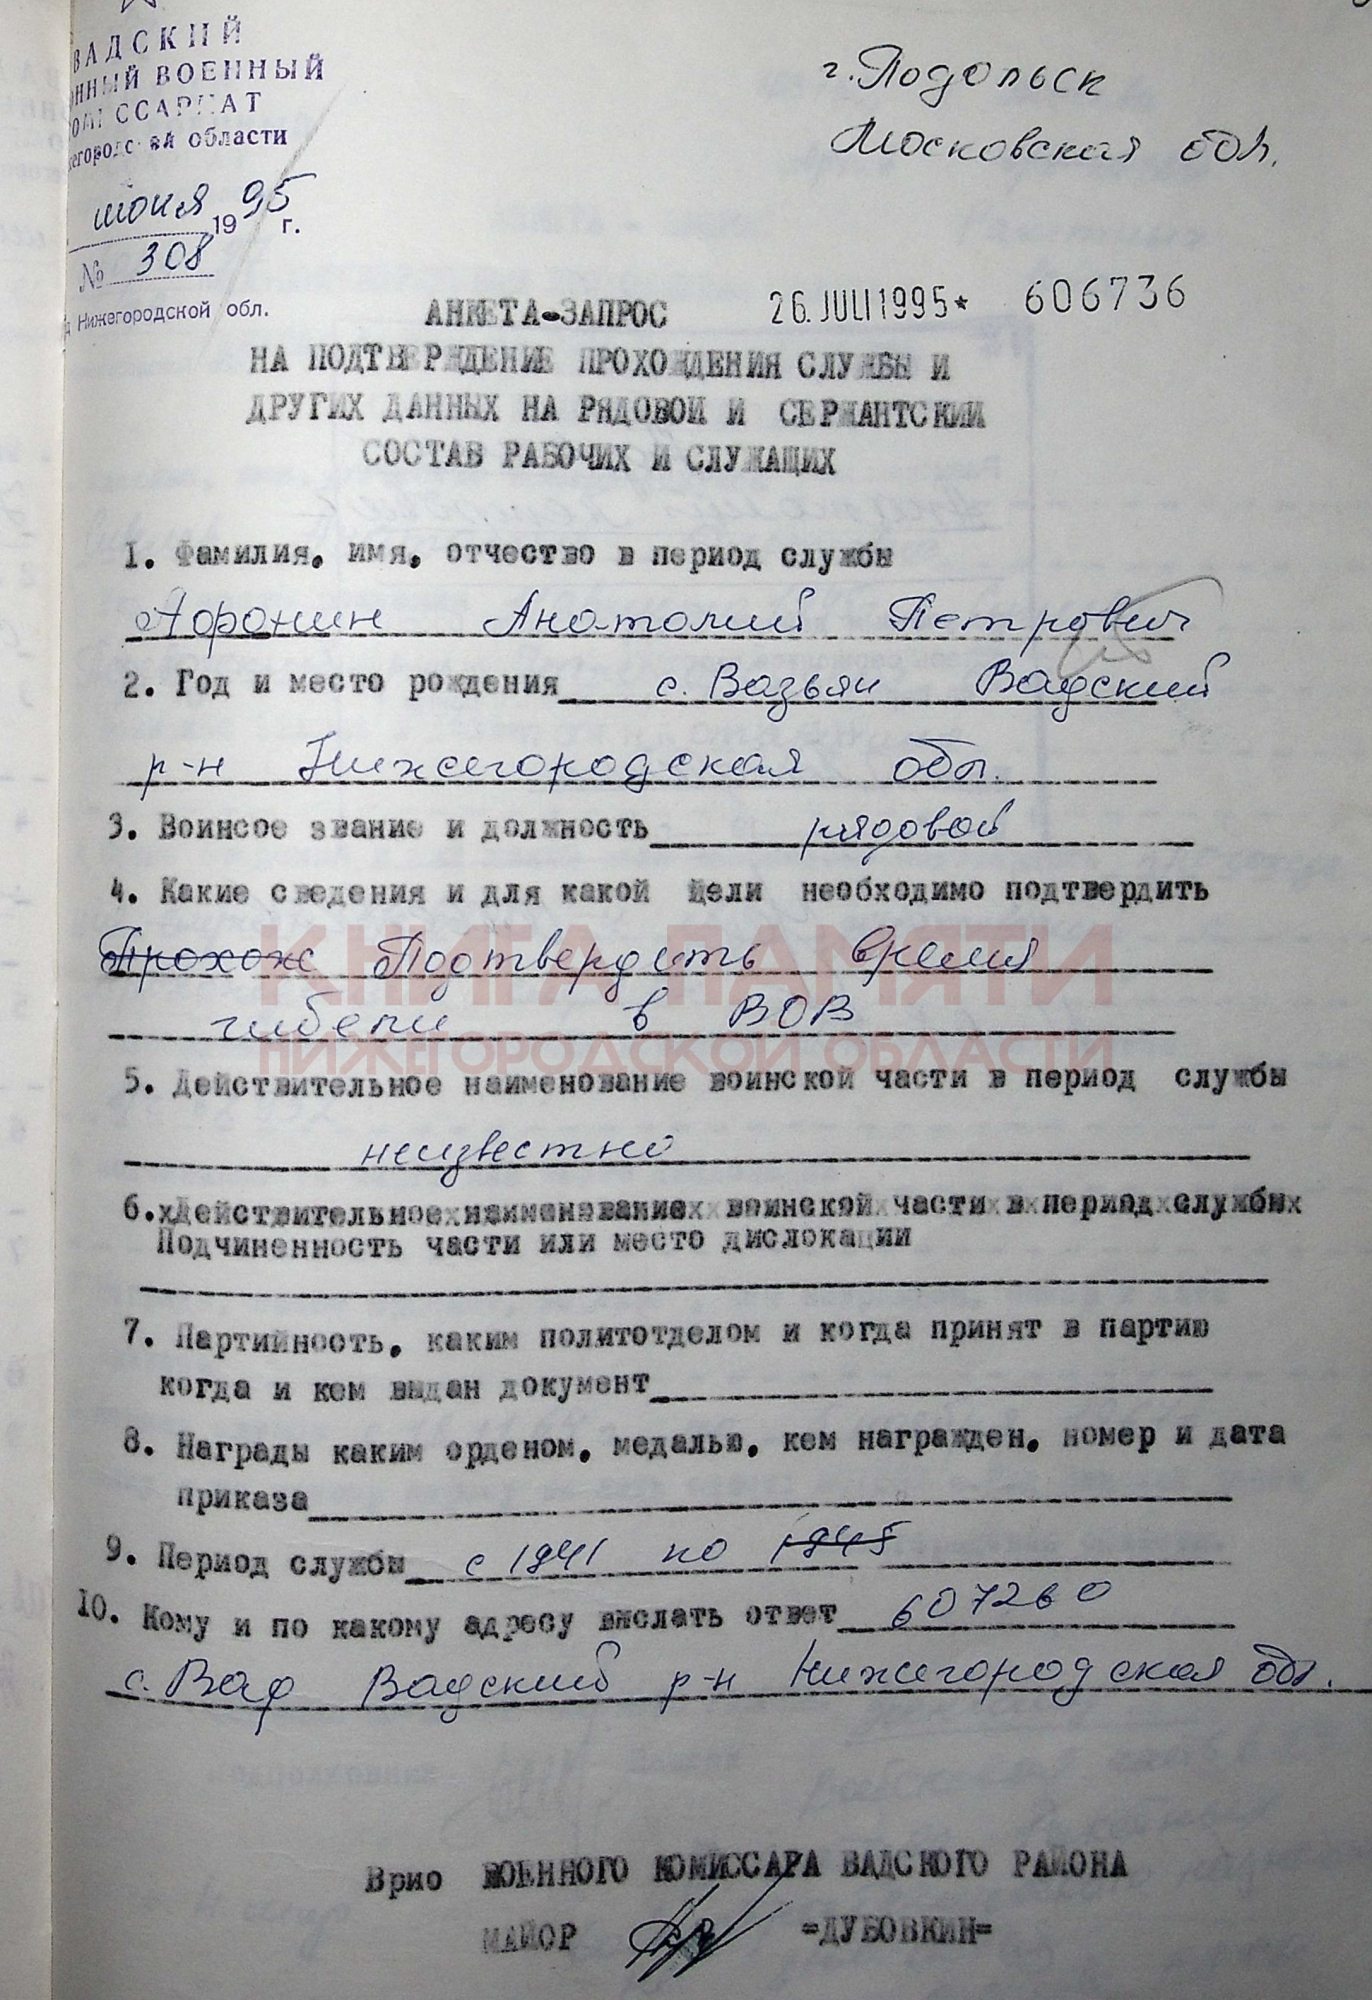 ВАДСКИЙ
ОННЫЙ ВОЕННЫЙ
КОМИССАРИАТ
жегородской области
июня 1995 г.
№ 308
д Нижегородской обл.
г. Подольск
Московская обл.
АНКЕТА-ЗАПРОС 26. JULI 1995* 606736
НА ПОДТВЕРЖДЕНИЕ ПРОХОЖДЕНИЯ СЛУЖБЫ И
ДРУГИХ ДАННЫХ НА РЯДОВОЙ И СЕРЖАНТСКИЙ
СОСТАВ РАБОЧИХ И СЛУЖАЩИХ
1. Фамилия, имя, отчество в период службы
Афонин Анатолий Петрович
2. Год и место рождения с. Вазьян Вадский
р-н Нижегородская обл.
3. Воинсое звание и должность рядовой
4. Какие сведения и для какой цели необходимо подтвердить
Прохож Подтвердить время
гибели в ВОВ
КНИГА ПАМЯТИ
НИЖЕГОРОДСКОЙ ОБЛАСТИ
5. Действительное наименование воинской части в период службы
неизвестно
6. Действительное наименование воинской части в период службы
Подчиненность части или место дислокации
7. Партийность, каким политотделом и когда принят в партию
когда и кем выдан документ
8. Награды каким орденом, медалью, кем награжден, номер и дата
приказа
9. Период службы с 1941 по 1945
10. Кому и по какому адресу выслать ответ 607260
с. Вад Вадский р-н Нижегородская обл.
Врио ВОЕННОГО КОМИССАРА ВАДСКОГО РАЙОНА
МАЙОР =ДУБОВКИН=